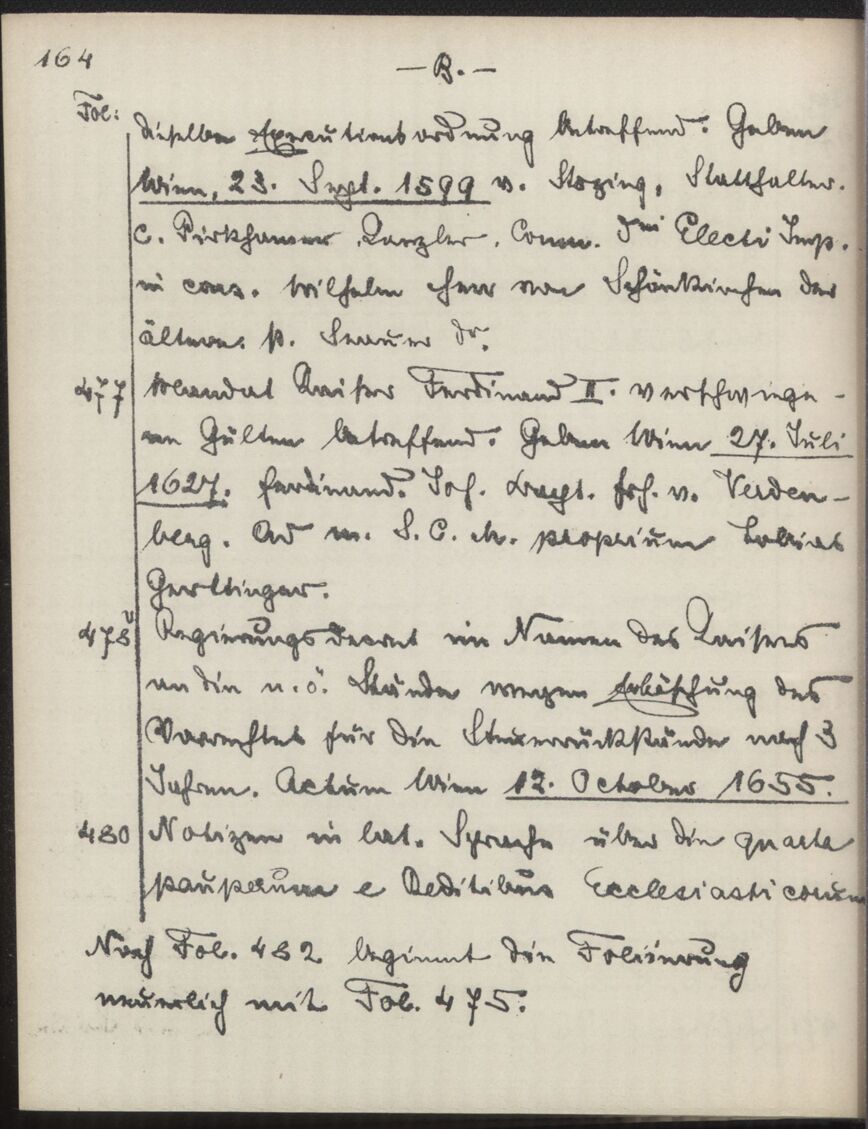 164
— B. —
Fol:
dieselbe Executionsordnung betreffend. Geben
Wien, 23. Sept. 1599 v. Stozing, Statthalter.
C. Pirkhamer, Kanzler, Comm. Dni Electi Imp.
in cons. Wilhelm Herr von Schönkirchen der
ältere. p. Dr.
477 Mandat Kaiser Ferdinand II. verschwiege-
ne Gülten betreffend. Geben Wien 27. Juli
1627. Ferdinand. Joh. Bapt. frh. v. Verden-
berg. Ad m. S. C. M. proprium Tobias
Gerttinger.
478 Regierungsdecret im Namen des Kaisers
an die n.ö. Stände wegen Erlöschung des
Vorrechtes für die Steuerrückstände nach 3
Jahren. Actum Wien 12. October 1655.
480 Notizen in lat. Sprache über die quarta
pauperum e Reditibus Ecclesiasticorum
Nach Fol. 482 beginnt die Foliierung
neuerlich mit Fol. 475.